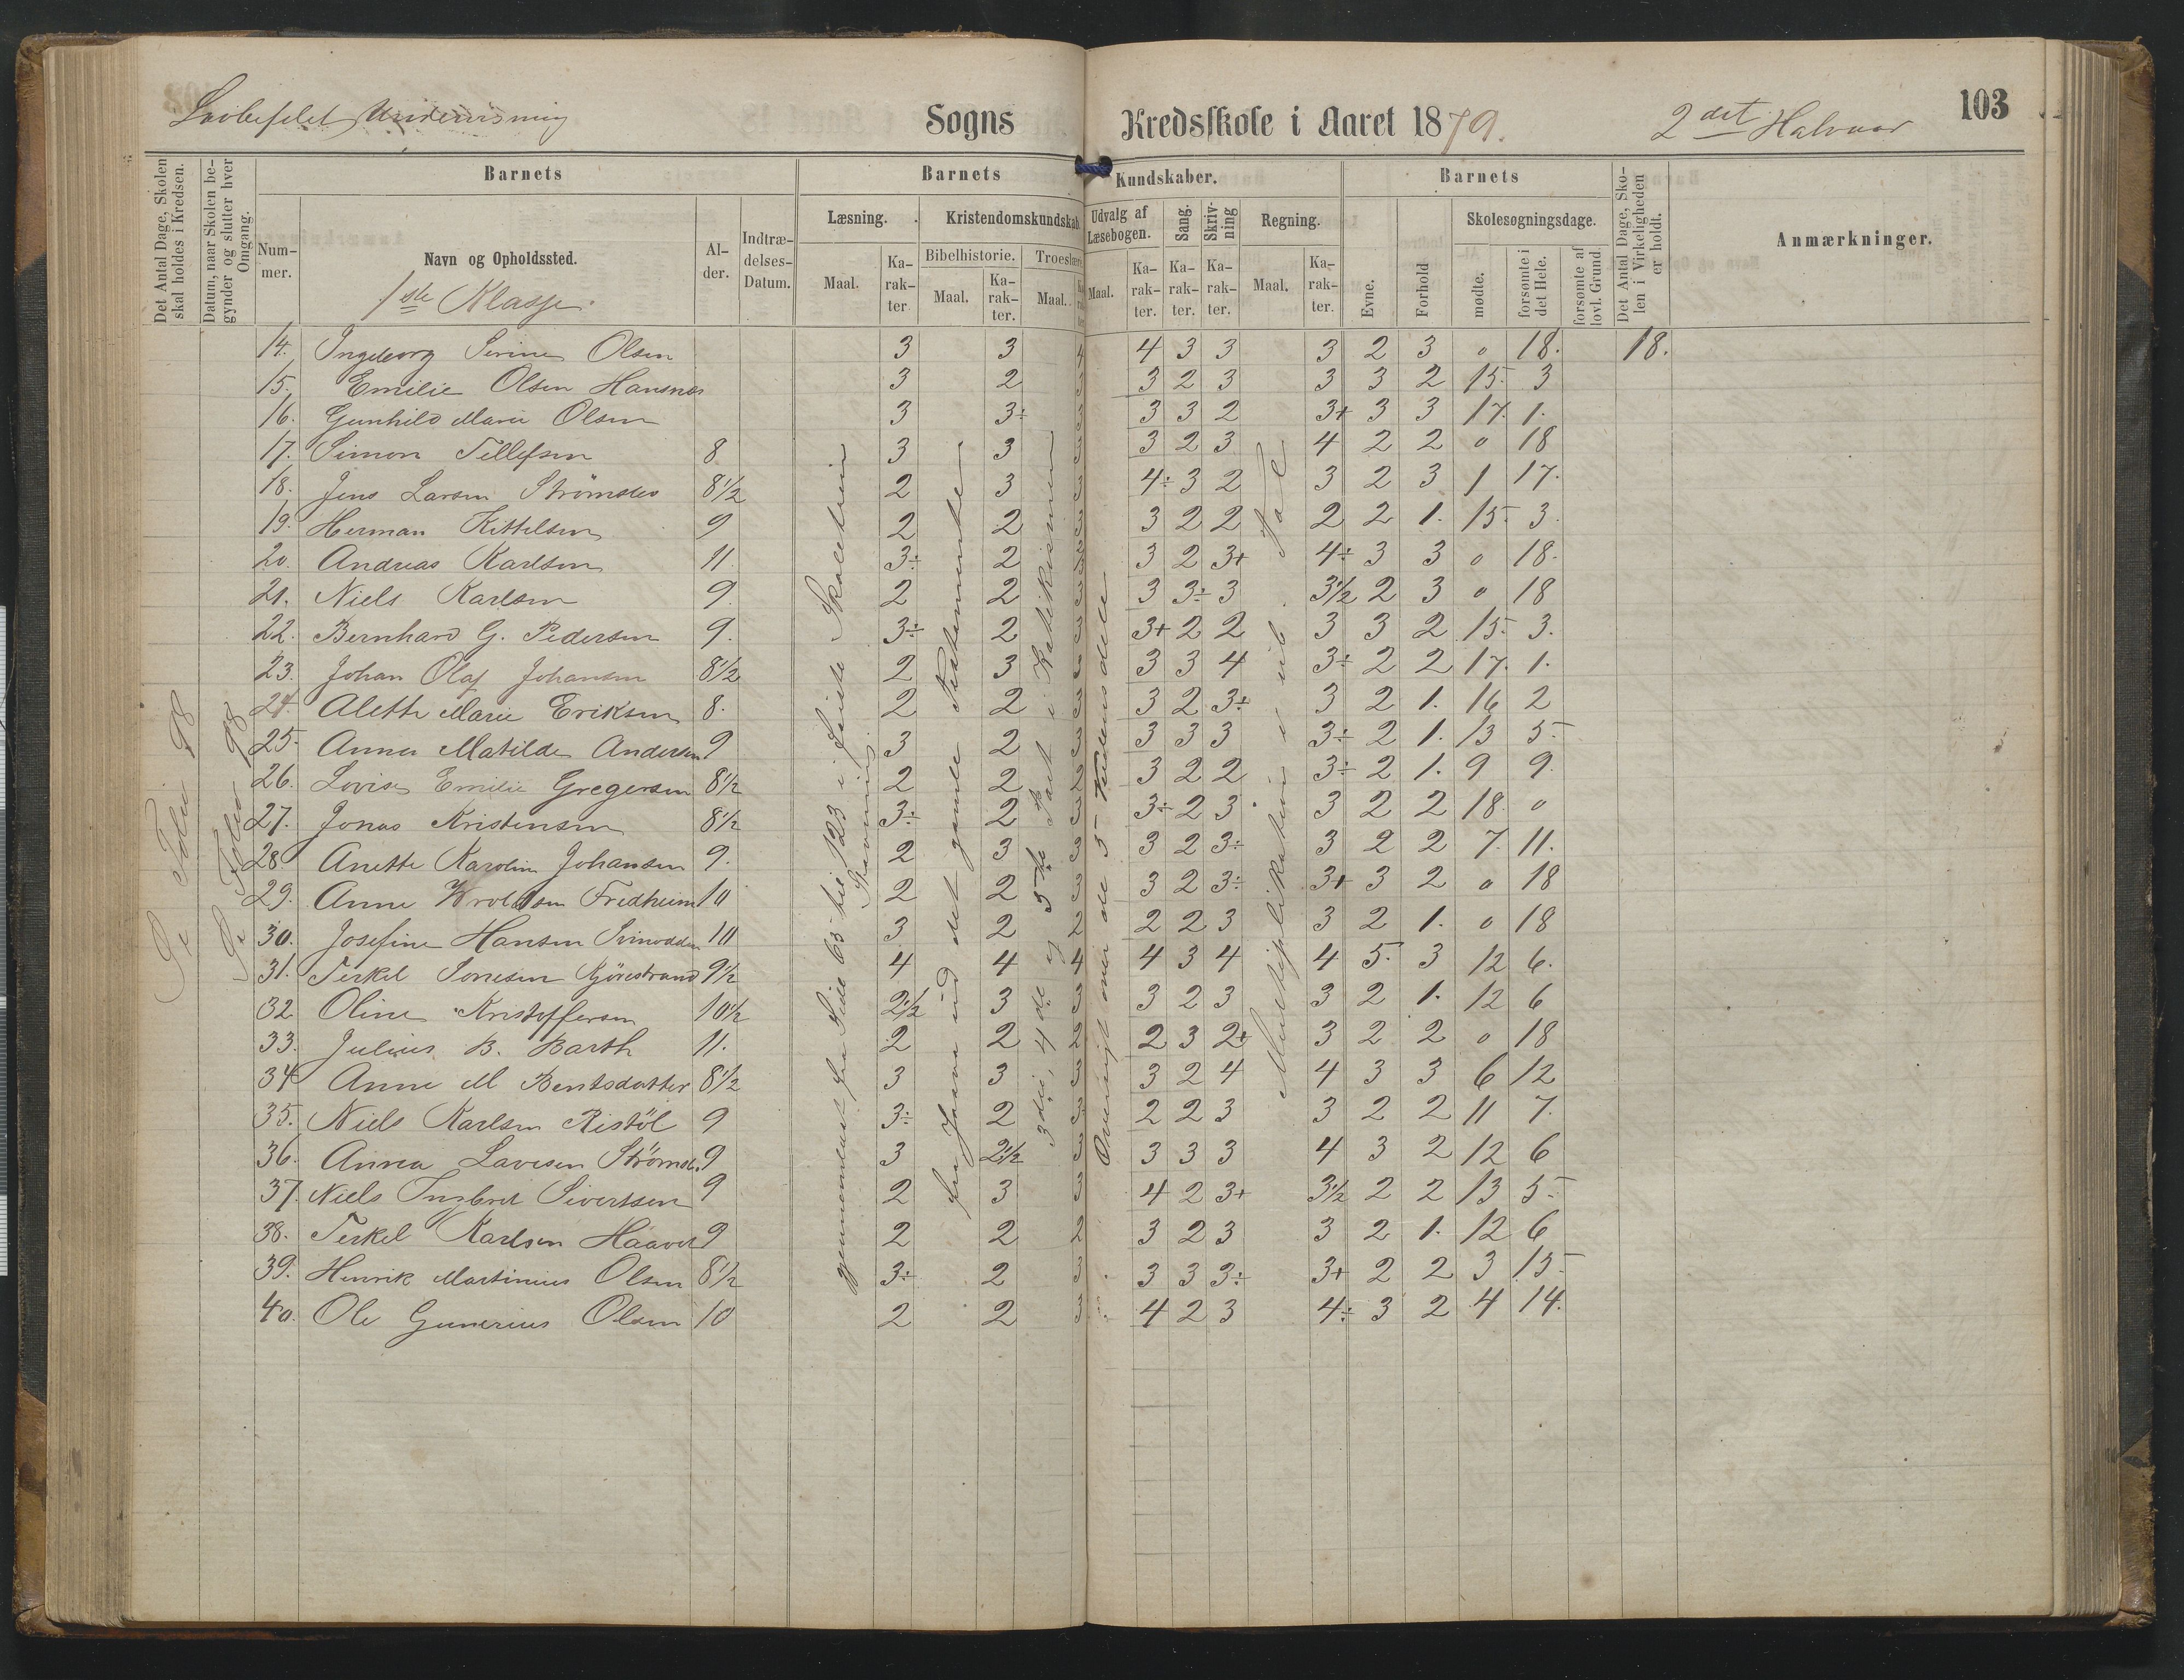 Lovbefalet Undervisning Sogns Kredsskole i Aaret 1879. 2det Halvaar 103
Det Antal Dage, Skolen skal holdes i Kredsen.
Datum, naar Skolen begynder og slutter hver Omgang.
Barnets
Nummer.
Navn og Opholdssted.
Alder.
Indtrædelses-Datum.
Barnets Kundskaber.
Læsning. Kristendomskundskab. Udvalg af Læsebogen. Sang. Skrivning Regning.
Bibelhistorie. Troeslære.
Maal. Karakter.
Barnets
Evne. Forhold Skolesøgningsdage.
mødte. forsømte i det Hele. forsømte af lovl. Grund.
Det Antal Dage, Skolen i Virkeligheden er holdt.
Anmærkninger.
1ste Klasse.
14. Ingeborg Serine Olsen 3 3 4 4 3 3 3 2 3 0 18. 18.
15. Emilie Olsen Hansnes 3 2 3 3 2 3 3 3 2 15. 3
16. Gunhild Marie Olsen 3 3÷ 3 3 3 2 3+ 3 3 17. 1.
17. Simon Tellefsen 8 3 3 3 3 2 3 4 2 2 0 18
18. Jens Larsen 8 1/2 2 3 3 4÷ 3 2 3 2 3 1 17.
19. Herman Kittelsen 9 2 2 3 3 2 2 2 2 1. 15. 3.
20. Andreas Karlsen 11 3÷ 2 3 3 2 3+ 4÷ 3 3 0 18.
21. Niels Karlsen 9. 2 2 3 3 3÷ 3 3 1/2 2 3 0 18
22. Bernhard G. Pedersen 9. 3÷ 2 3 3+ 2 2 3 3 2 15. 3.
23. Johan Olaf Johansen 8 1/2 2 3 3 3 3 4 3÷ 2 2 17. 1.
24. Alette Marie Eriksen 8. 2 2 3 3 2 3÷ 3 2 1. 16 2
25. Anna Matilde Andersen 9 3 2 3 3 3 3 3÷ 2 1. 13 5
26. Lovise Emilie Gregersen 8 1/2 2 2 2 3 2 2 3÷ 2 1. 9 9.
27. Jonas Kristensen 8 1/2 3÷ 2 3 3÷ 2 3 3 2 2 18. 0
28. Anette Karoline Johansen 9. 2 3 3 3 2 3÷ 3 2 2 7. 11.
29. Anne Fredheim 10 2 2 3 3 2 3÷ 3+ 3 2 0 18
30. Josefine Hansen Svinodden 10 3 2 2 2 2 3 3 2 1. 0 18
31. Terkel Sonesen Gjønestrand 9 1/2 4 4 4 4 3 4 4 5. 3 12 6.
32. Oline Kristoffersen 10 1/2 2 1/2 3 3 3 2 3 3 2 1. 12 6
33. Julius B. Barth 11. 2 2 2 2 3 2+ 3 2 2 0 18
34 Anne M Bentsdatter 8 1/2 3 3 3 3 2 4 4 3 3 6 12
35. Niels Karlsen Ristöl 9 3÷ 2 3 2 2 3 3 2 2 11 7.
36. Anna Lavesen 9 3 2 1/2 3 3 3 3 4 3 2 12 6
37. Niels Ingbret Sivertsen 9 2 3 3 4 2 3+ 3 1/2 2 2 13 5
38. Terkel Karlsen Haavet 9 2 2 2 3 2 3 3 2 1. 12 6
39. Henrik Martinius Olsen 8 1/2 3÷ 2 3 3 3 3÷ 3+ 2 2 3 15
40. Ole Gunerius Olsen 10 2 2 3 4 2 3 4÷ 3 2 4 14.
Se Folio 98
Se Folio 98
gjennemlæst fra Side 63 til 123 i
Stavning.
fra Josva ud det gamle Testamente
3die, 4de og 5te Part i Katekismen
Oversigt over de 5 Verdensdele
Multiplikation i ub. Tal